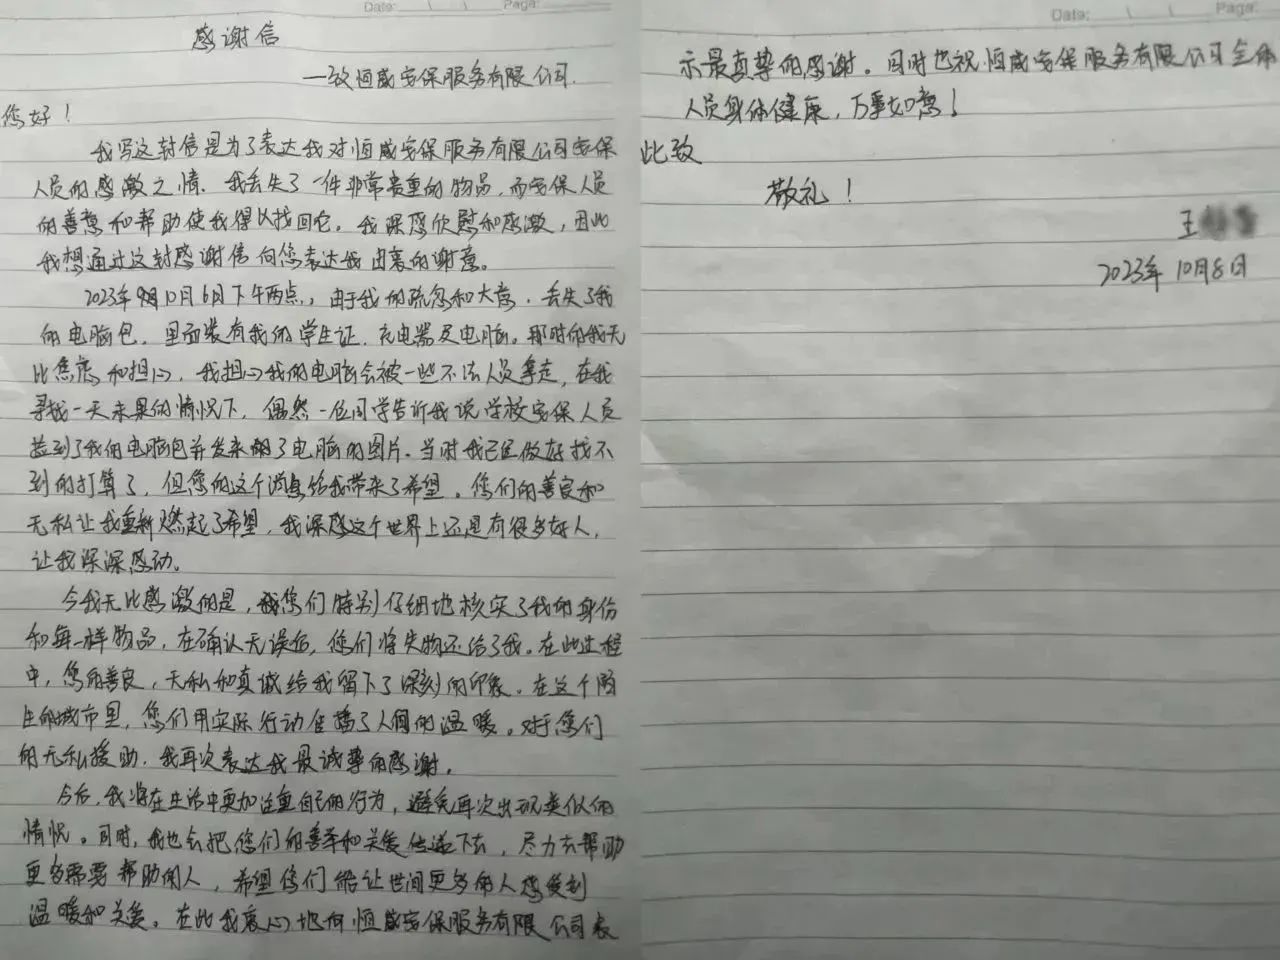 Date: \ \ Page:
感谢信
—致恒威安保服务有限公司.
您好！
我写这封信是为了表达我对恒威安保服务有限公司安保
人员的感激之情. 我丢失了一件非常贵重的物品，而安保人员
的善意和帮助使我得以找回它。我深感欣慰和感激，因此
我想通过这封感谢信向您表达我由衷的谢意。
2023年10月6日下午两点，由于我的疏忽和大意，丢失了我
的电脑包，里面装有我的学生证、充电器及电脑。那时的我无
比焦虑和担心，我担心我的电脑会被一些不法人员拿走，在我
寻找一天未果的情况下，偶然一位同学告诉我说学校安保人员
捡到了我的电脑包并发来了电脑的图片。当时我已经做好找不
到的打算了，但您的这个消息给我带来了希望。您们的善良和
无私让我重新燃起了希望，我深感这个世界上还是有很多好人，
让我深深感动。
令我无比感激的是，您们特别仔细地核实了我的身份
和每一样物品，在确认无误后，您们将失物还给了我。在此过程
中，您的善良，无私和真诚给我留下了深刻的印象。在这个陌
生的城市里，您们用实际行动传播了人间的温暖。对于您们
的无私援助，我再次表达我最诚挚的感谢。
今后，我将在生活中更加注重自己的行为，避免再次出现类似的
情况。同时，我也会把您们的善举和关爱传递下去，尽力去帮助
更多需要帮助的人，希望您们能让世间更多的人感受到
温暖和关爱。在此我衷心地向恒威安保服务有限公司表
Date: \ \ Page:
示最真挚的感谢。同时也祝恒威安保服务有限公司全体
人员身体健康，万事如意！
此致
敬礼！
王
2023年10月8日